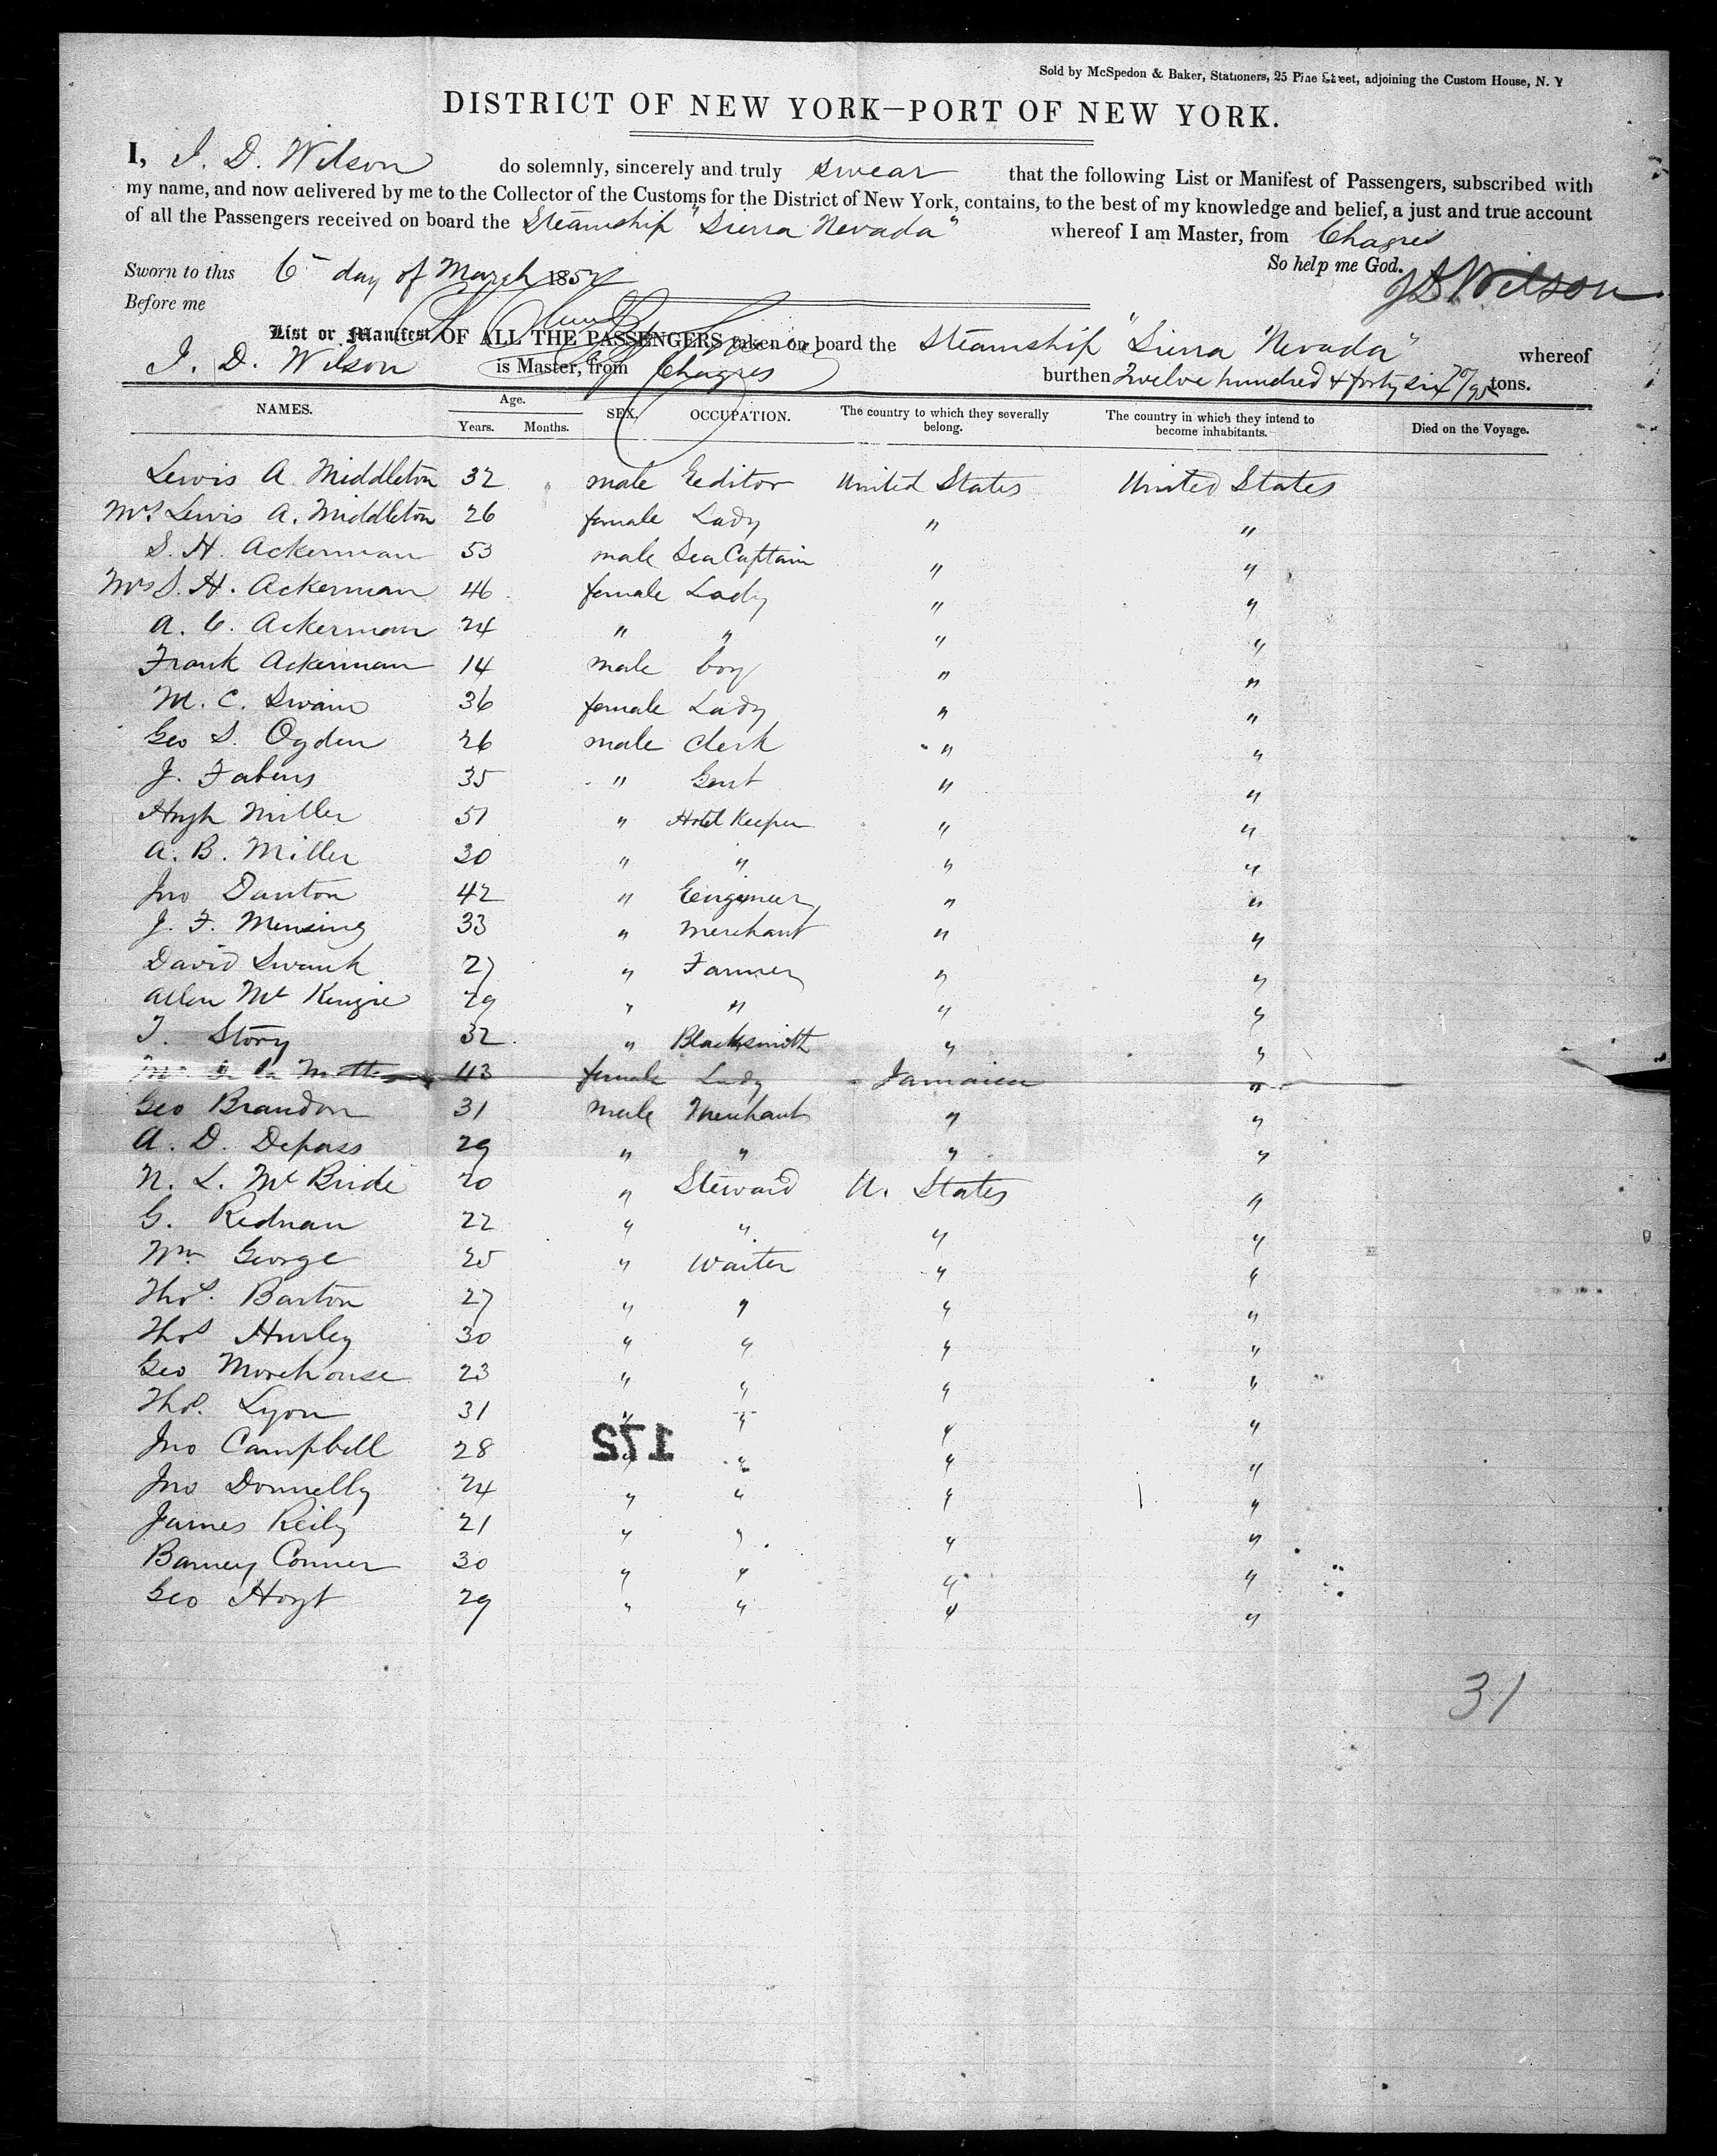 Sold by McSpedon & Baker, Stationers, 25 Pine Street, adjoining the Custom House, N. Y
DISTRICT OF NEW YORK—PORT OF NEW YORK.
I, J. D. Wilson do solemnly, sincerely and truly swear that the following List or Manifest of Passengers, subscribed with
my name, and now delivered by me to the Collector of the Customs for the District of New York, contains, to the best of my knowledge and belief, a just and true account
of all the Passengers received on board the Steamship "Sierra Nevada" whereof I am Master, from Chagres
So help me God.
Sworn to this 6 day of March 1852 JD Wilson
Before me
List or Manifest OF ALL THE PASSENGERS taken on board the Steamship "Sierra Nevada" whereof
J. D. Wilson is Master, from Chagres burthen Twelve hundred & forty six 70/95 tons.
NAMES. Age. Years. Months. SEX. OCCUPATION. The country to which they severally belong. The country in which they intend to become inhabitants. Died on the Voyage.
Lewis A Middleton 32 male Eeditor United States United States
Mrs Lewis A. Middleton 26 female Lady " "
S. H. Ackerman 53 male Sea Captain " "
Mrs S. H. Ackerman 46 female Lady " "
A. C. Ackerman 24 " " " "
Frank Ackerman 14 male boy " "
M. C. Swain 36 female Lady " "
Geo S. Ogden 26 male Clerk " "
J. Fabens 35 " Gent " "
Hugh Miller 51 " Hotel Keeper " "
A. B. Miller 30 " " " "
Jno Danton 42 " Eengineer " "
J. F. Mensing 33 " Merchant " "
David Swank 27 " Farmer " "
Allen Mc Kenzie 29 " " " "
T. Story 32 " Blacksmith " "
Mrs De la Motta 43 female Lady Jamaica "
Geo Brandon 31 male Merchant " "
A. D. Depass 29 " " " "
N. L. Mc Bride 20 " Steward U. States "
G. Rednan 22 " " " "
Wm George 25 " Waiter " "
Thos. Barton 27 " " " "
Thos Hurley 30 " " " "
Geo Morehouse 23 " " " "
Thos. Lyon 31 " " " "
172
Jno Campbell 28 " " " "
Jno Donnelly 24 " " " "
James Reily 21 " " " "
Barney Conner 30 " " " "
Geo Hoyt 29 " " " "
31